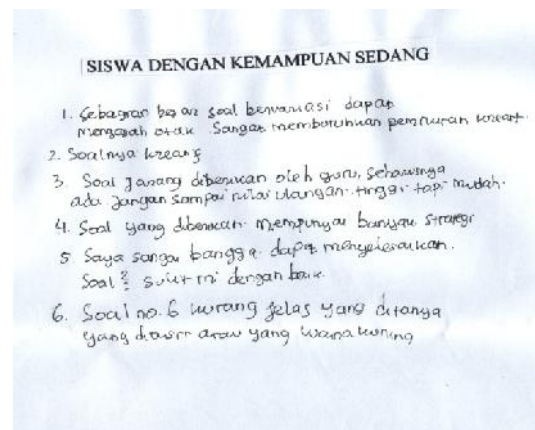 SISWA DENGAN KEMAMPUAN SEDANG
1. Sebagian besar soal bervariasi dapat
mengasah otak. Sangat membutuhkan pemikiran kreatif.
2. Soalnya kreatif
3. Soal jarang diberikan oleh guru, seharusnya
ada. jangan sampai nilai ulangan tinggi tapi mudah.
4. Soal yang diberikan mempunyai banyak strategi
5 Saya sangat bangga dapat menyelesaikan.
Soal2 sulit ini dengan baik.
6. Soal no. 6 kurang jelas yang ditanya
yang diarsir atau yang warna kuning